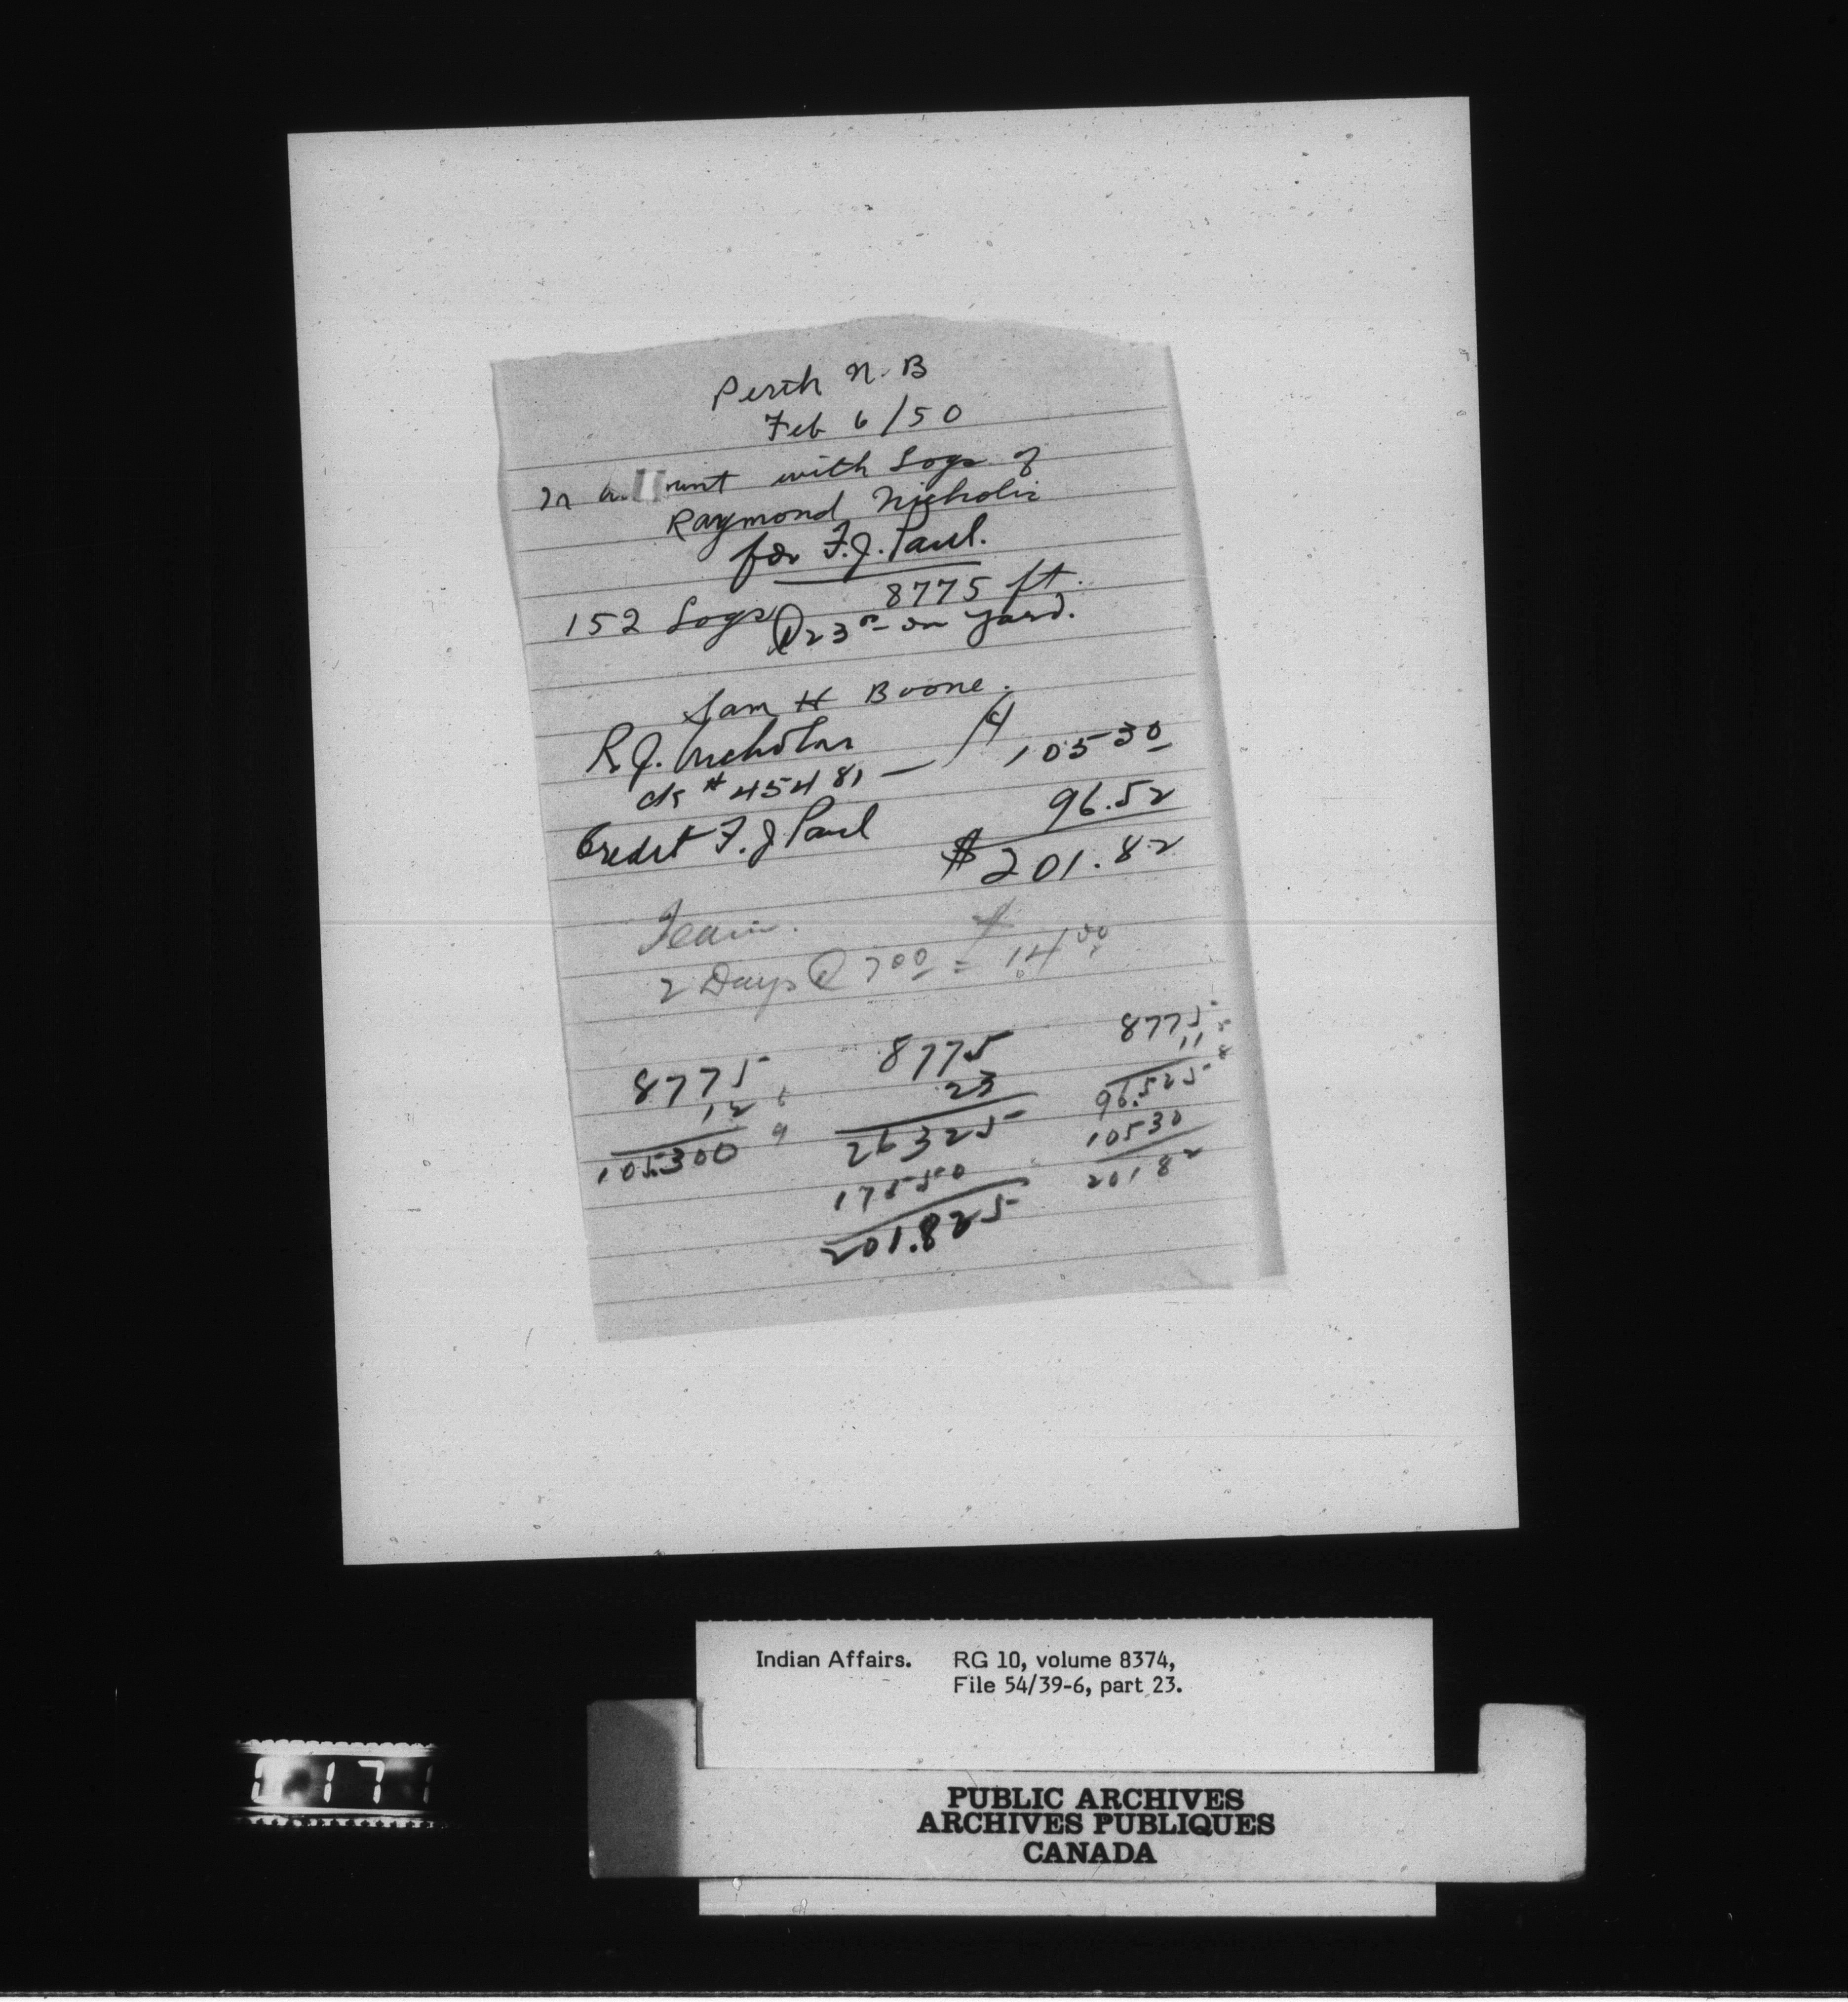 Perth N. B
Feb 6/50
In a unt with Logs of
Raymond Nicholis
for F.J. Paul.
8775 ft.
152 Logs @ 23 00 on yard.
Sam H Boone.
R.J. Nicholas
ck # 45481 — $ 105 30
Credit F. J Paul 96.52
$ 201.82
Team.
2 Days @ 7 00 = $ 14 00
8775
12
105.300
8775
23
26325
17550
201.825
8775
11
96.525
10530
20182
Indian Affairs. RG 10, volume 8374,
File 54/39-6, part 23.
PUBLIC ARCHIVES
ARCHIVES PUBLIQUES
CANADA